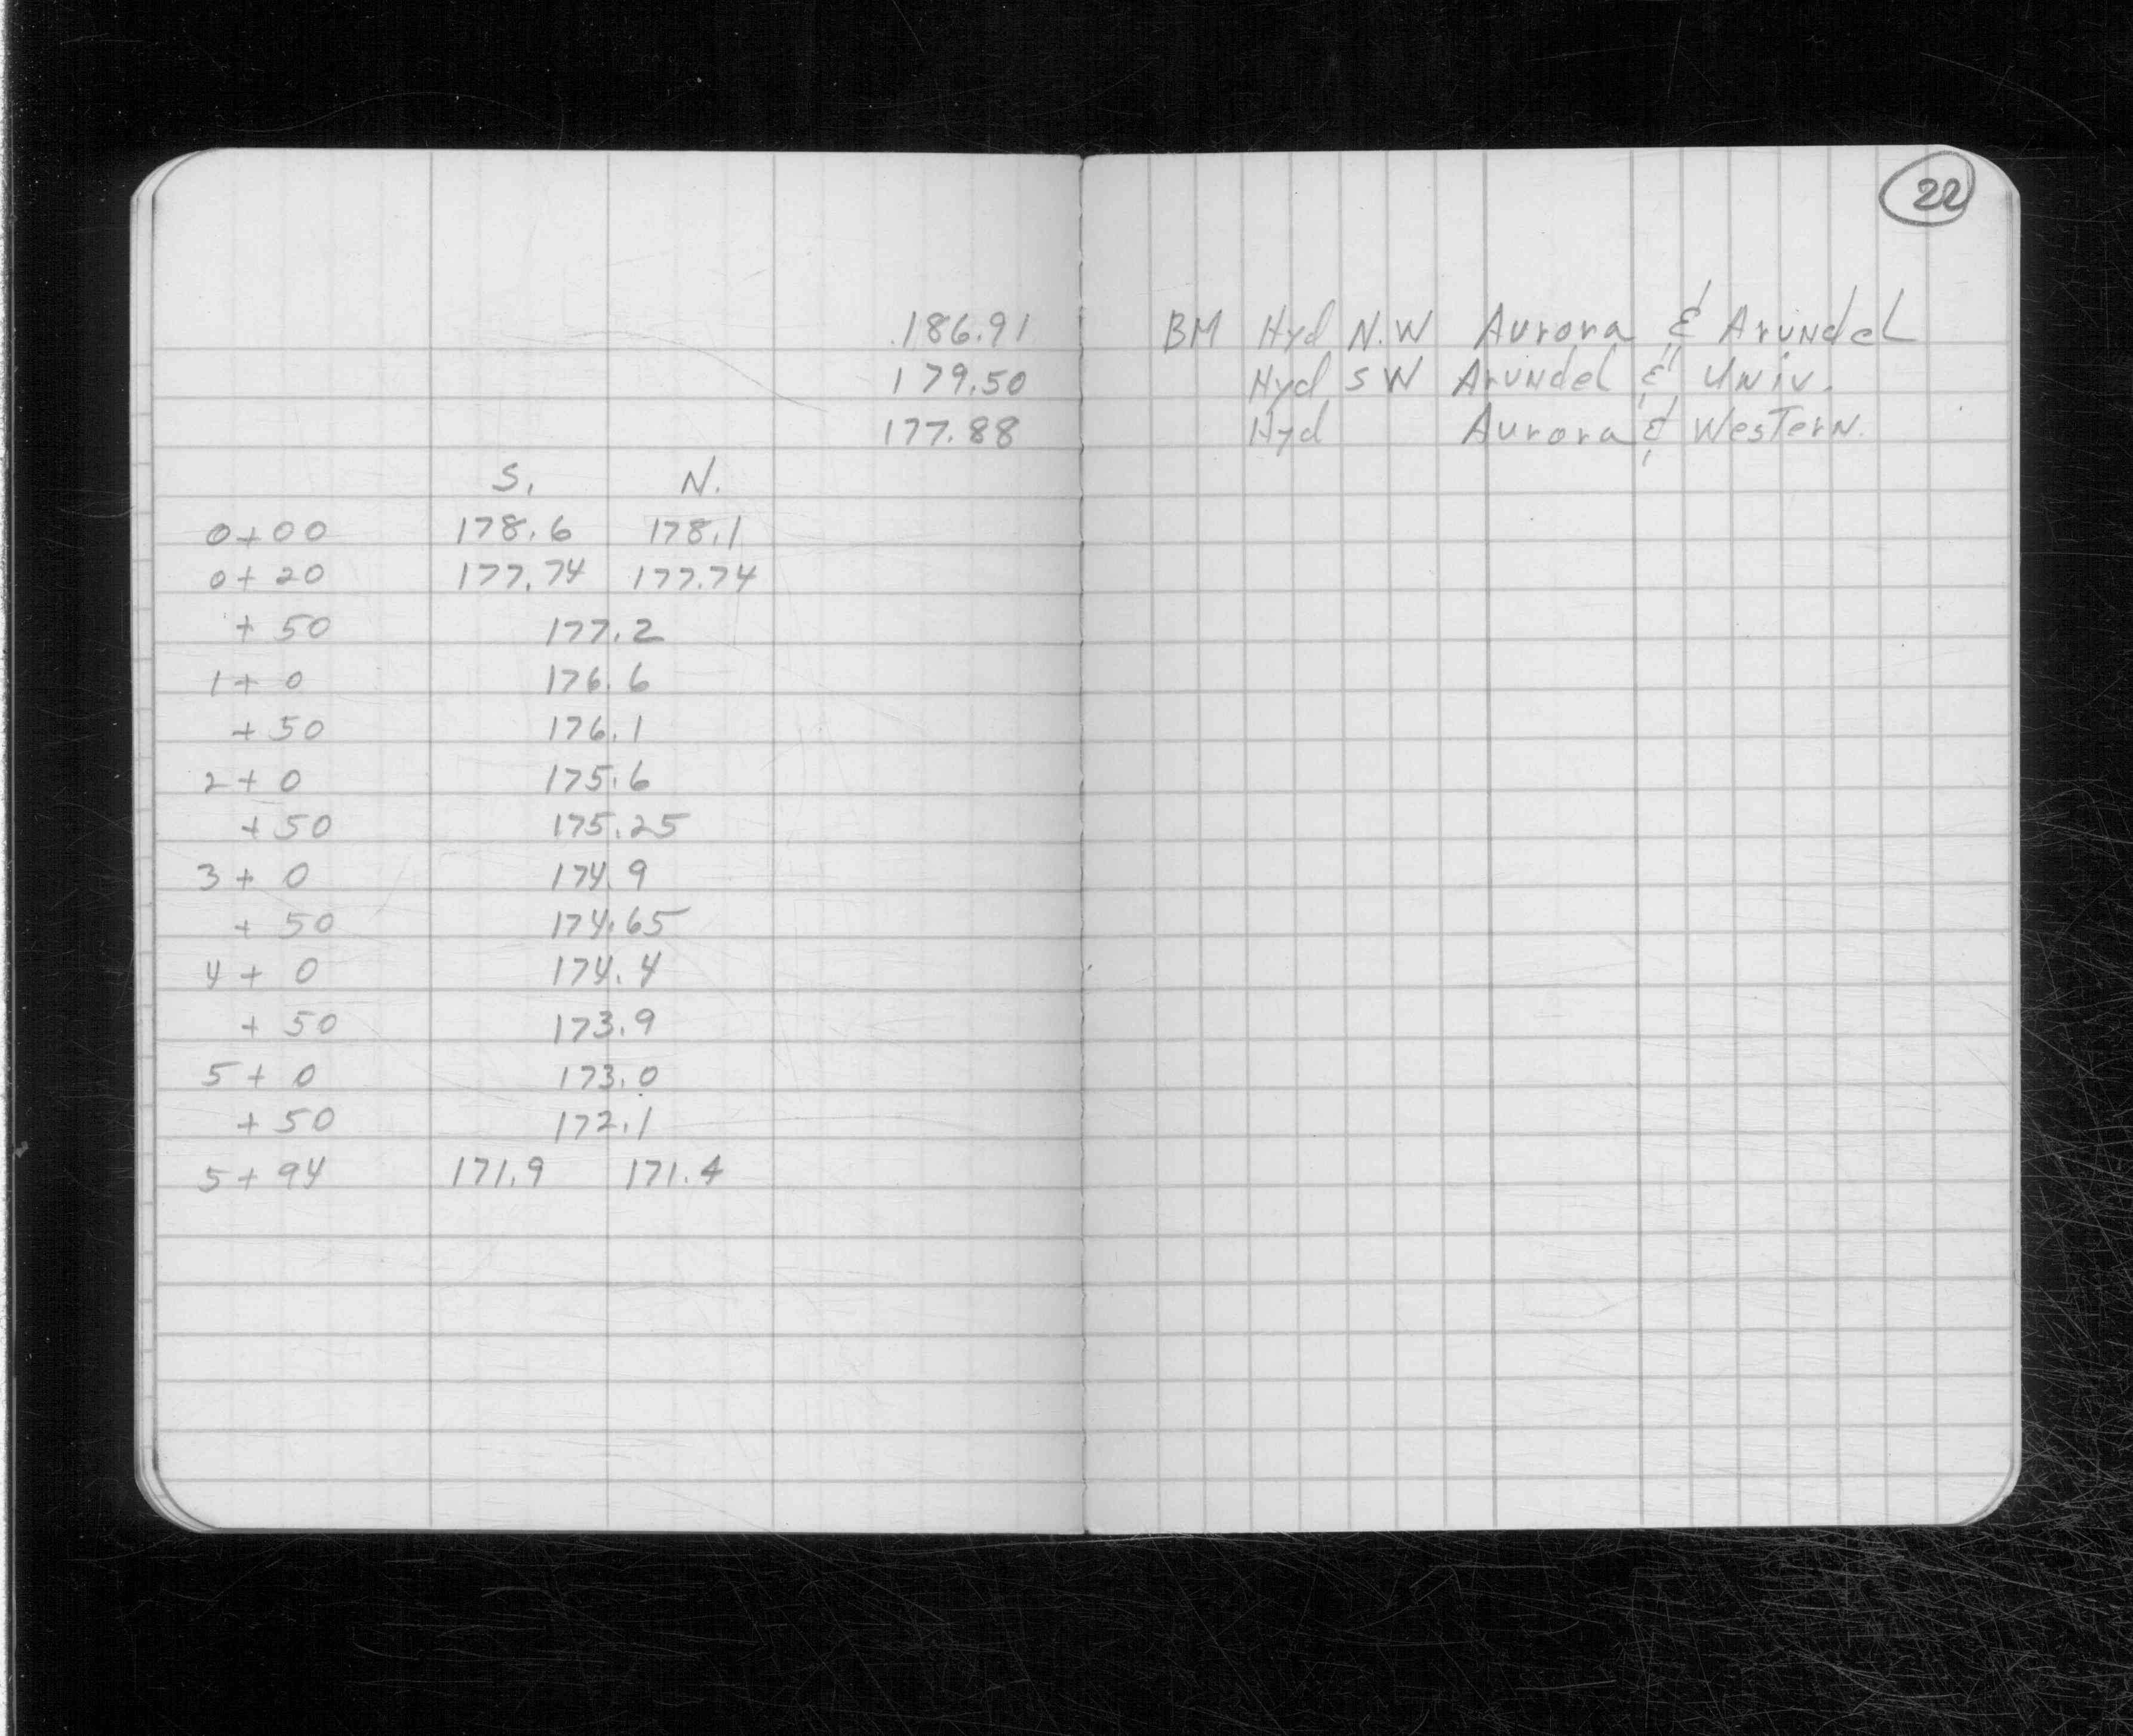 22
186.91 BM Hyd N.W Aurora & Arundel
179.50 Hyd S W Arundel & Univ.
177.88 Hyd Aurora & Western.
S. N.
0+00 178.6 178.1
0+20 177.74 177.74
+50 177.2
1+0 176.6
+50 176.1
2+0 175.6
+50 175.25
3+0 174.9
+50 174.65
4+0 174.4
+50 173.9
5+0 173.0
+50 172.1
5+94 171.9 171.4